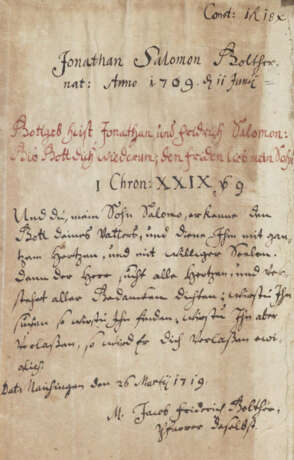 Const: 1 fl 18 x
Jonathan Salomon Bolther
nat: Anno 1709. d 11 Junij
Gottgeb heist Jonathan, und fridrich Salomon:
Gott dich wiederum; den frieden lieb mein Sohn
1 Chron: XXIX, v 9
Und du, mein Sohn Salomo, erkenne den
Gott deines Vatters, und diene Ihm mit gan-
zem Hertzen, und mit williger Seelen.
Denn der Herr sucht alle Hertzen, und ver-
stehet aller Gedancken dichten; wirstu Ihn
suchen, so wirstu Ihn finden, wirstu Ihn aber
verlaßen, so wird Er dich verlaßen ewi-
glich.
Dat: den 26 Martij 1719.
M. Jacob Friderich Bolther,
Pfarrer daselbst.